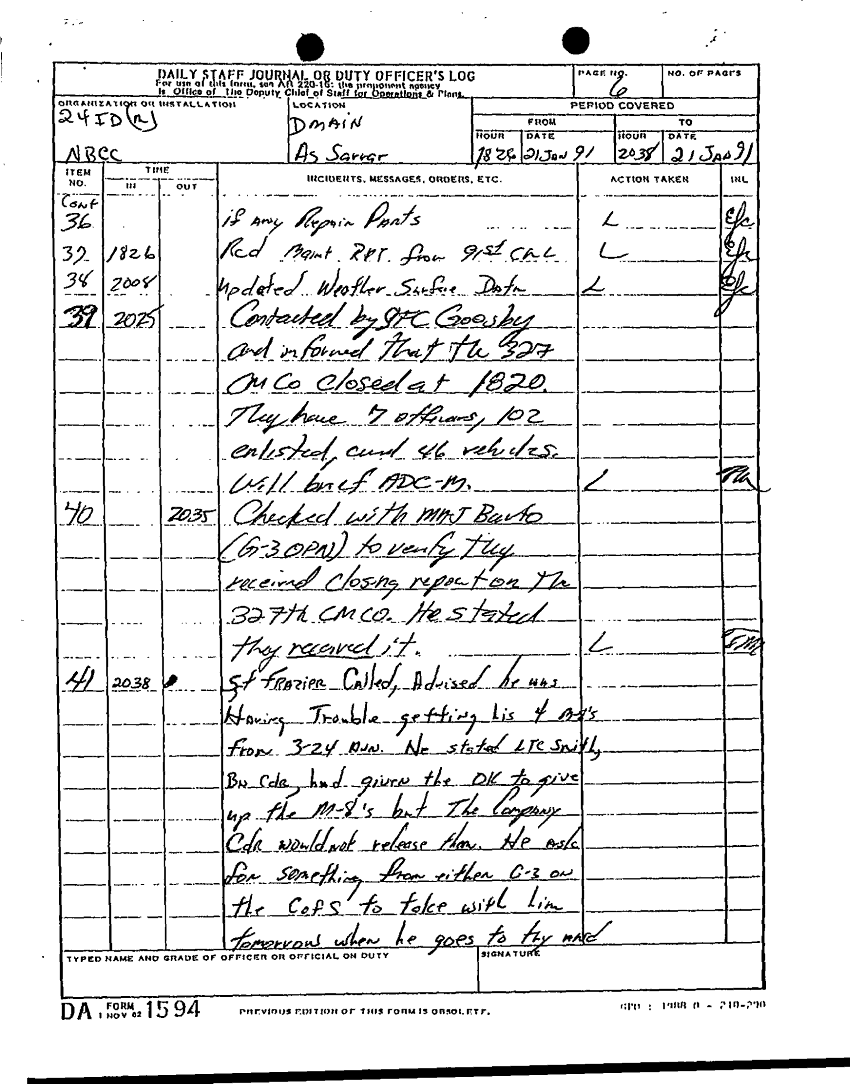 DAILY STAFF JOURNAL OR DUTY OFFICER'S LOG
For use of this form, see AR 220-15; the proponent agency
is Office of The Deputy Chief of Staff for Operations & Plans.
PAGE NO.
6
NO. OF PAGES
ORGANIZATION OR INSTALLATION
24 ID (M)
NBCC
LOCATION
DMAIN
As Sarrar
PERIOD COVERED
FROM
TO
HOUR DATE HOUR DATE
1826 21 JAN 91 2038 21 JAN 91
ITEM NO. TIME IN OUT INCIDENTS, MESSAGES, ORDERS, ETC. ACTION TAKEN INL
Cont
36 if Any Repair Parts L
37 1826 Rcd Maint. RPT. from 91st CML L
38 2008 Updated Weather Surface Data L
39 2025 Contacted by SFC Goosby
and informed that the 327
CM Co closed at 1820.
They have 7 officers, 102
enlisted, and 46 vehicles.
Will brief ADC-M. L
40 2035 Checked with MAJ
(G-3 OPN) to verify they
received closing report on the
327th CM CO. He stated
they received it. L
41 2038 FRAZIER Called, Advised he was
Having Trouble getting his 4
From 3-24 He stated LTC Smith,
BN Cdr, had given the OK to give
up the M-8's but The Company
Cdr would not release them. He ask
for something from either G-3 or
the CofS to take with him
tomorrow when he goes to
TYPED NAME AND GRADE OF OFFICER OR OFFICIAL ON DUTY
SIGNATURE
DA FORM 1 NOV 62 1594
PREVIOUS EDITION OF THIS FORM IS OBSOLETE.
GPO : 1988 O - 210-290